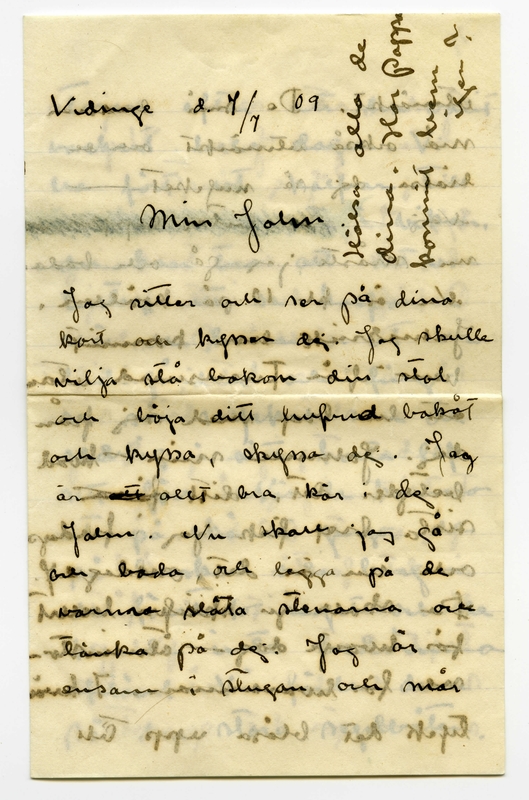 Vidinge d. 7/7 09
Min John
Jag sitter och ser på dina
kort och kysser dig. Jag skulle
vilja stå bakom din stol
och böja ditt hufvud bakåt
och kyssa, kyssa dig. Jag
är allt bra kär i dig
John. Nu skall jag gå
och bada och ligga på de
varma släta stenarna och
tänka på dig. Jag är
ensam i stugan och mår
Hälsa alla de
dina. Har Pappa
kommit hem
än?